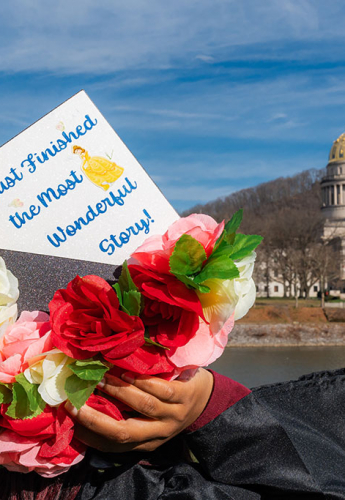 ust Finished
the Most
Wonderful
Story!